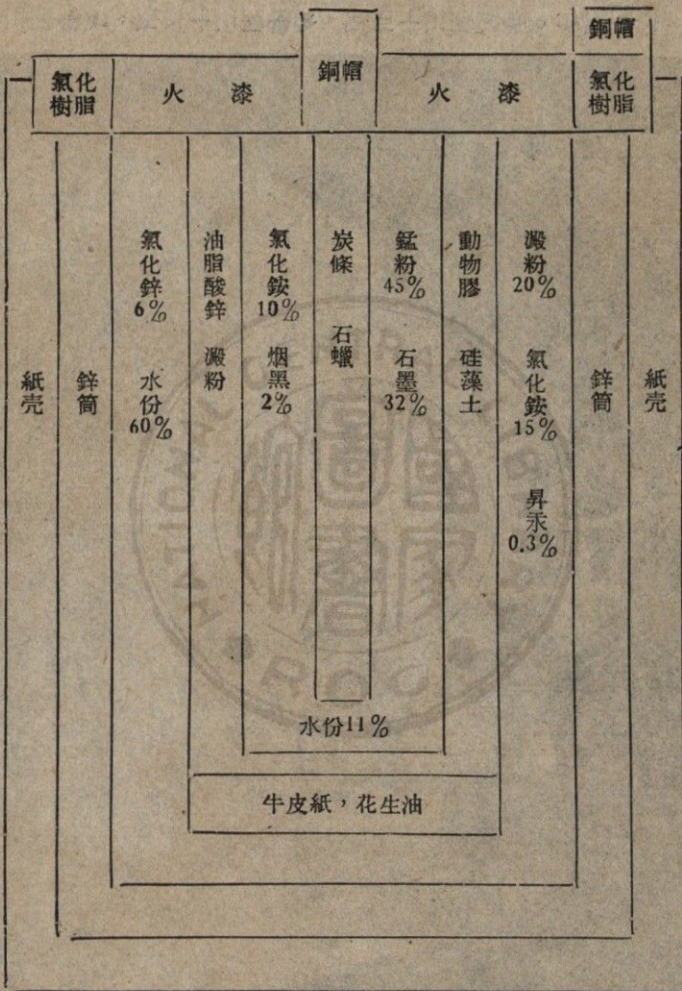 銅帽
銅帽
氯化
樹脂
火漆
火漆
氯化
樹脂
紙壳
鋅筒
氯化鋅
6%
水份
60%
油脂酸鋅
澱粉
氯化銨
10%
烟黑
2%
炭條
石蠟
錳粉
45%
石墨
32%
動物膠
硅藻土
澱粉
20%
氯化銨
15%
昇汞
0.3%
鋅筒
紙壳
水份11%
牛皮紙，花生油